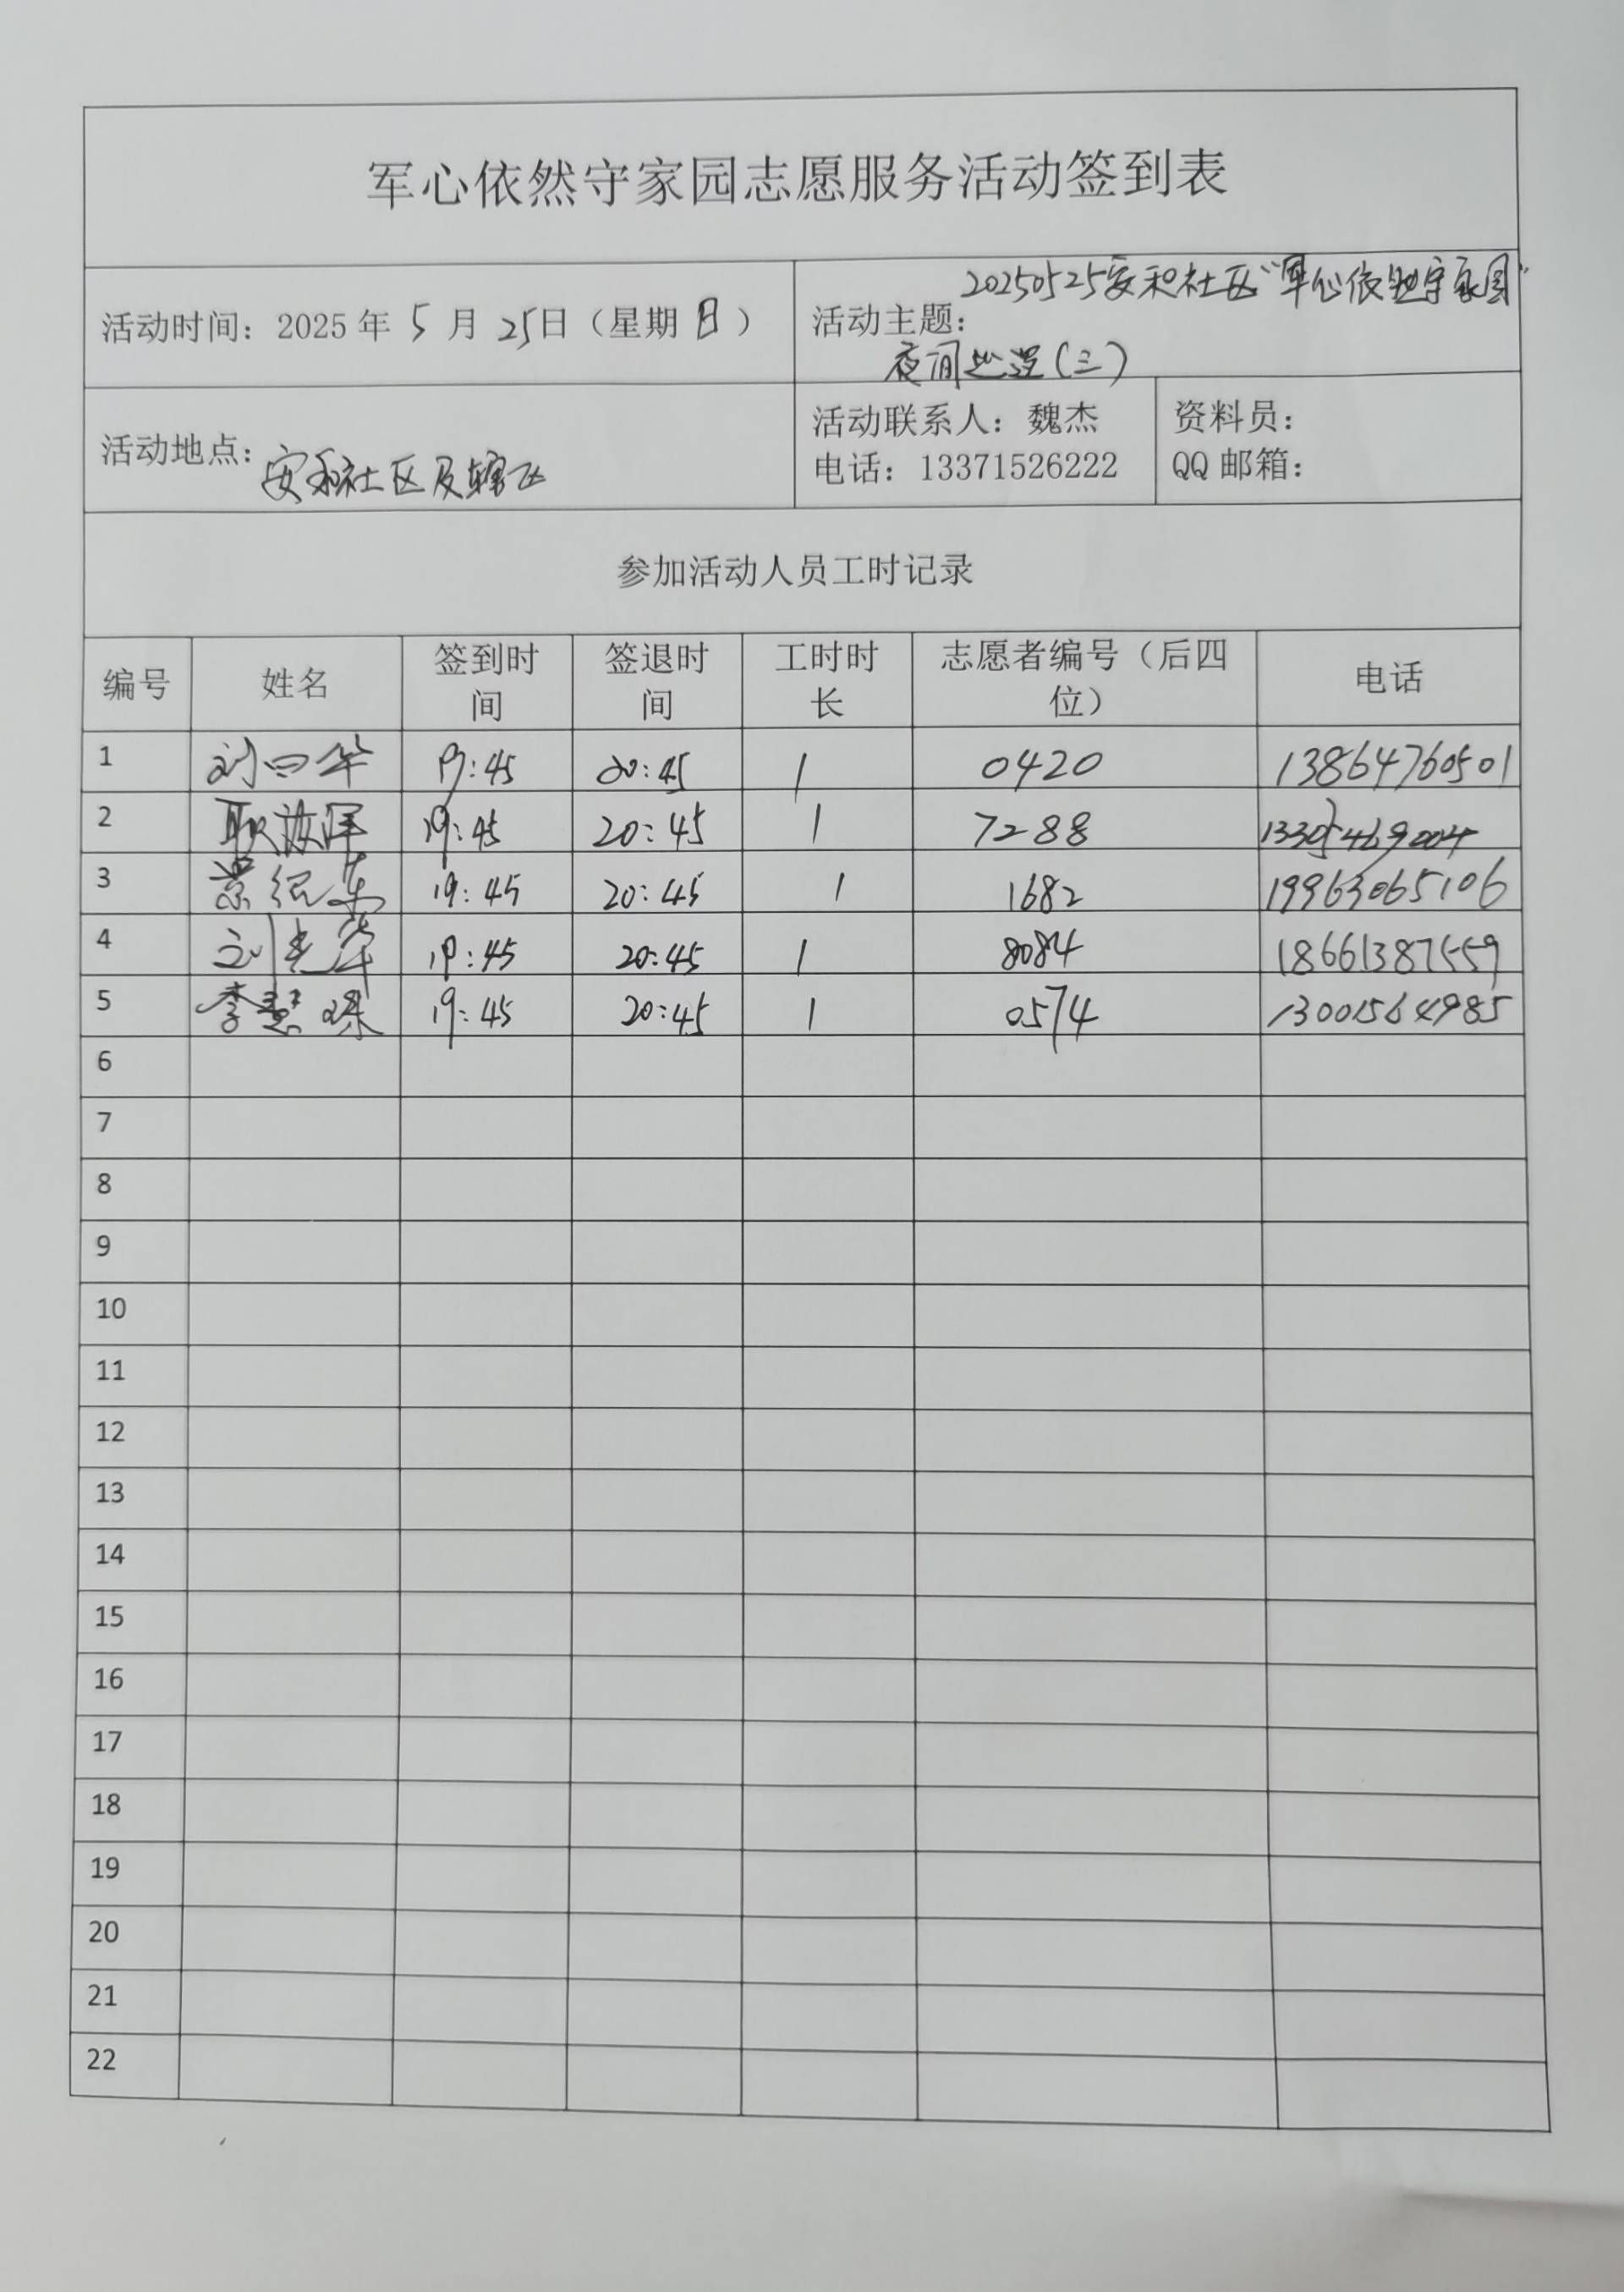 军心依然守家园志愿服务活动签到表
活动时间：2025年 5 月 25日（星期 日 ）
活动主题：20250525安和社区“军心依然守家园”
夜间巡逻（三）
活动地点：安和社区及辖区
活动联系人：魏杰
电话：13371526222
资料员：
QQ邮箱：
参加活动人员工时记录
编号 姓名 签到时间 签退时间 工时时长 志愿者编号（后四位） 电话
1 刘四华 19:45 20:45 1 0420 13864760501
2 19:45 20:45 1 7288
3 景纪东 19:45 20:45 1 1682 19963065106
4 刘光华 19:45 20:45 1 8084 18661387559
5 李慧 19:45 20:45 1 0574 13001564985
6
7
8
9
10
11
12
13
14
15
16
17
18
19
20
21
22